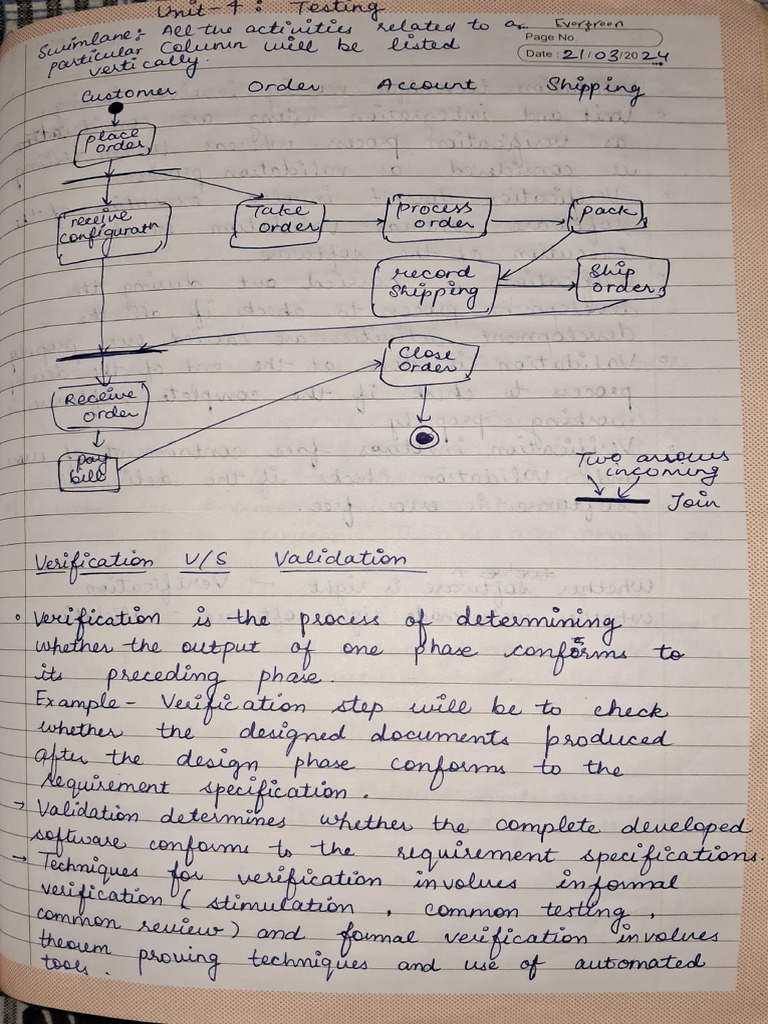 Unit-4: Testing
Evergreen
Page No
Date: 21/03/2024
Swimlane:- All the activities related to a
particular column will be listed
vertically.
Customer Order Account Shipping
place
order
receive
configuratn
Take
order
process
order
pack
record
Shipping
Ship
order
Close
order
Receive
order
pay
bill
Two arrows
incoming
Join
Verification V/S Validation
• Verification is the process of determining
whether the output of one phase conforms to
its preceding phase.
Example- Verification step will be to check
whether the designed documents produced
after the design phase conforms to the
requirement specification.
→ Validation determines whether the complete developed
software conforms to the requirement specifications.
→ Techniques for verification involves informal
verification ( stimulation, common testing,
common review) and formal verification involves
theorem proving techniques and use of automated
tools.